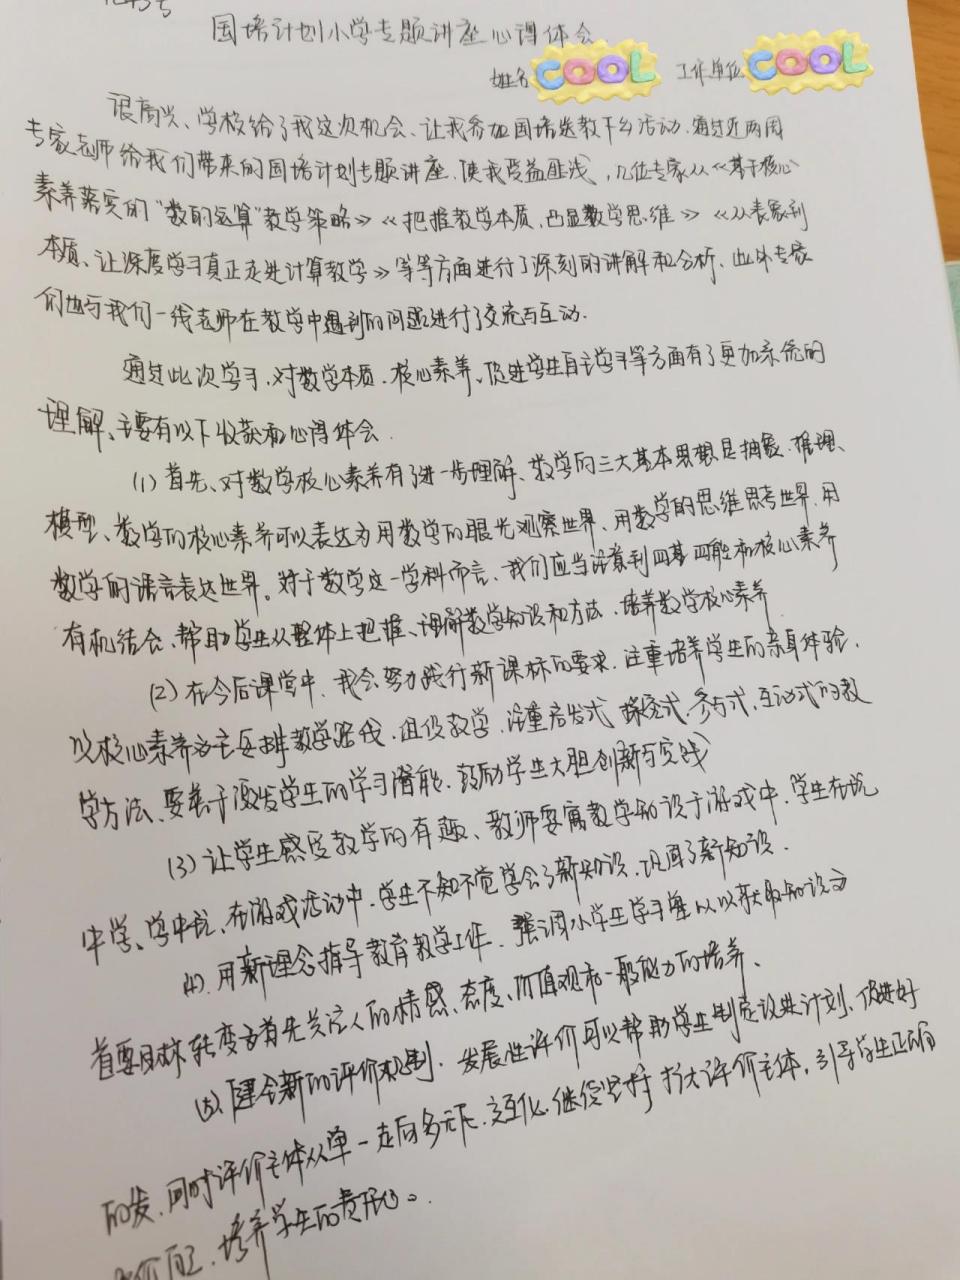 国培计划小学专题讲座心得体会
姓名 COOL 工作单位 COOL
很高兴、学校给了我这次机会、让我参加国培送教下乡活动.通过近两周
专家老师给我们带来的国培计划专题讲座.使我受益匪浅,几位专家从《基于核心
素养落实的"数的运算"教学策略》《把握教学本质,凸显数学思维》《从表象到
本质、让深度学习真正走进计算教学》等等方面进行了深刻的讲解和分析、此外专家
们也与我们一线老师在教学中遇到的问题进行了交流与互动.
通过此次学习.对数学本质.核心素养、促进学生自主学习等方面有了更加系统的
理解、主要有以下收获和心得体会.
(1)首先、对数学核心素养有了进一步理解、数学的三大基本思想是抽象.推理、
模型、数学的核心素养可以表达为用数学的眼光观察世界、用数学的思维思考世界.用
数学的语言表达世界。对于数学这一学科而言、我们应当注意到四基四能和核心素养
有机结合、帮助学生从整体上把握、理解数学知识和方法.培养数学核心素养
(2)在今后课堂中.我会努力践行新课标的要求.注重培养学生的亲身体验.
以核心素养为主安排教学路线,组织教学,注重启发式 探究式,参与式,互动式的教
学方法、要善于激发学生的学习潜能.鼓励学生大胆创新与实践
(3)让学生感受教学的有趣、教师要寓教学知识于游戏中.学生在玩
中学、学中玩、在游戏活动中.学生不知不觉学会了新知识、巩固了新知识.
(4).用新理念指导教育教学工作. 强调小学生学习 从以获取知识为
首要目标转变为首先关注人的情感、态度、价值观和一般能力的培养、
(5)、健全新的评价机制.发展性评价可以帮助学生制定改进计划、促进好
的发,同时评价主体从单一走向多元化.交互化.继续坚持扩大评价主体,引导学生正确
培养学生的责任心。